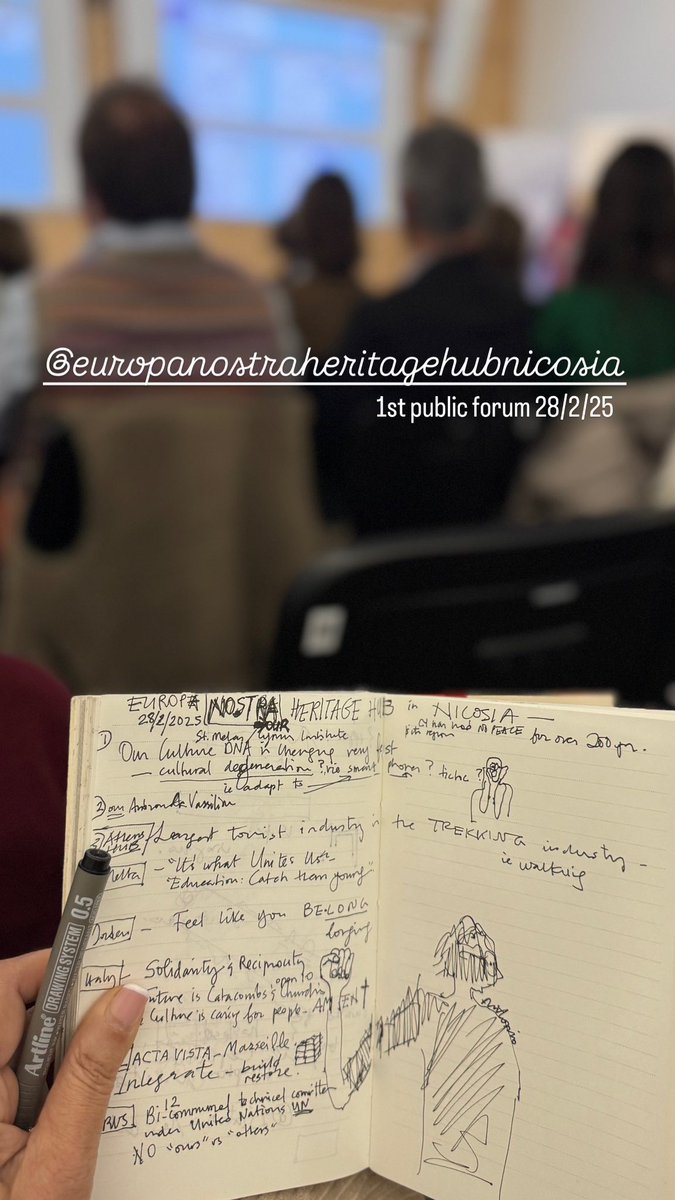 @europanostraheritagehubnicosia
1st public forum 28/2/25
EUROPA NOSTRA HERITAGE HUB in NICOSIA —
28/2/2025
NO PEACE for over 200 yr.
1) Our Culture DNA is changing very fast
— cultural degeneration? via smart phones?
ie adapt to
Largest tourist industry in the TREKKING industry —
ie walking
— "It's what Unites Us" —
"Education: Catch them young"
— Feel like you BELONG
longing
Italy — Solidarity & Reciprocity
is Catacombs & Churches
Culture is caring for people
ACTA VISTA — Marseille
Integrate — build
restore.
Bi-communal 12 technical committee
under United Nations UN
NO "ours" vs "others"
Artline DRAWING SYSTEM 0.5